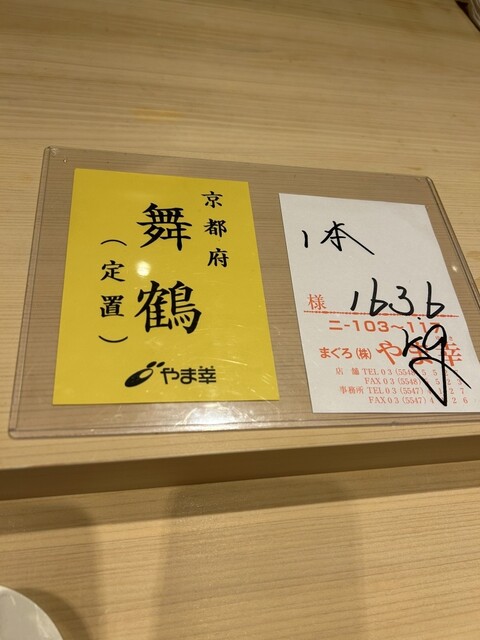 京都府
舞鶴
(定置)
やま幸
1本
様
163.6
kg
ニ-103~117
まぐろ(株)やま幸
店舗 TEL03(5548)
FAX03(5548)
事務所 TEL03(5547)
FAX03(5547)